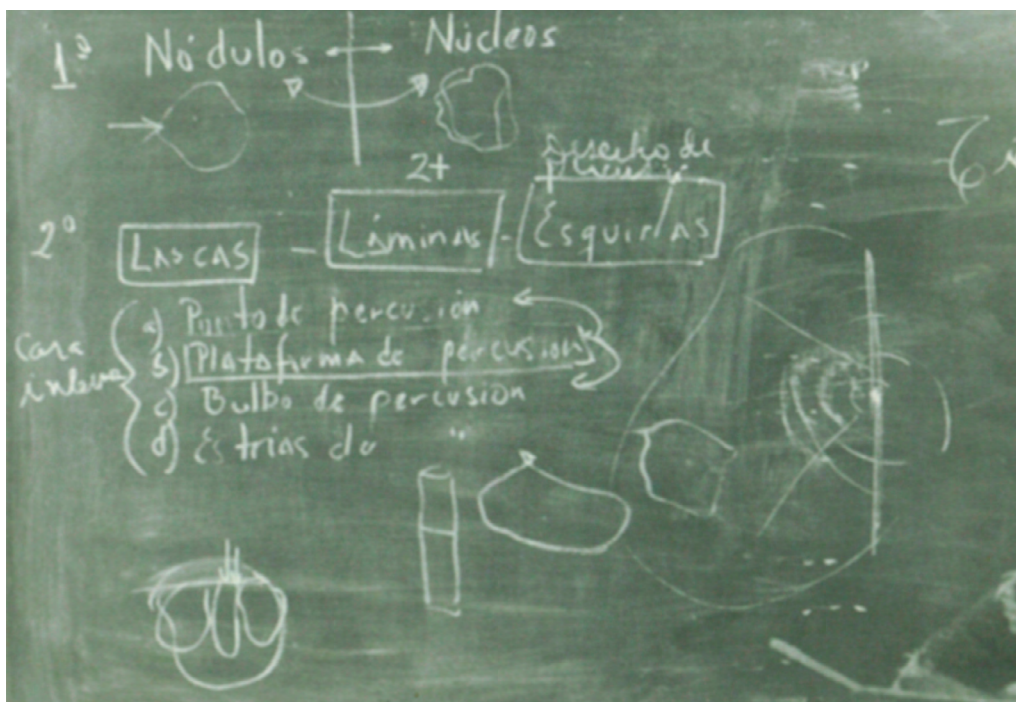 1º Nódulos ↔ Núcleos
2+
Desecho de
percusió
2º LASCAS - Láminas - Esquirlas
Cara
a) Punto de percusión
b) Plataforma de percusion
c) Bulbo de percusion
d) Estrias de "